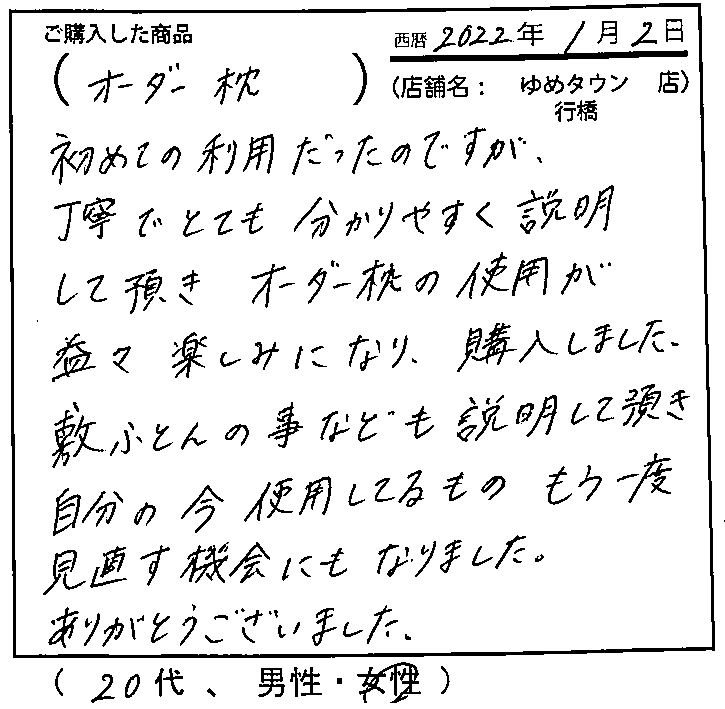 ご購入した商品
西暦 2022年 1月2日
(オーダー枕)
(店舗名： ゆめタウン 店)
行橋
初めての利用だったのですが、
丁寧でとても分かりやすく説明
して頂き オーダー枕の使用が
益々楽しみになり、購入しました。
敷ふとんの事なども説明して頂き
自分の今使用してるもの もう一度
見直す機会にもなりました。
ありがとうございました。
(20代、男性・女性)